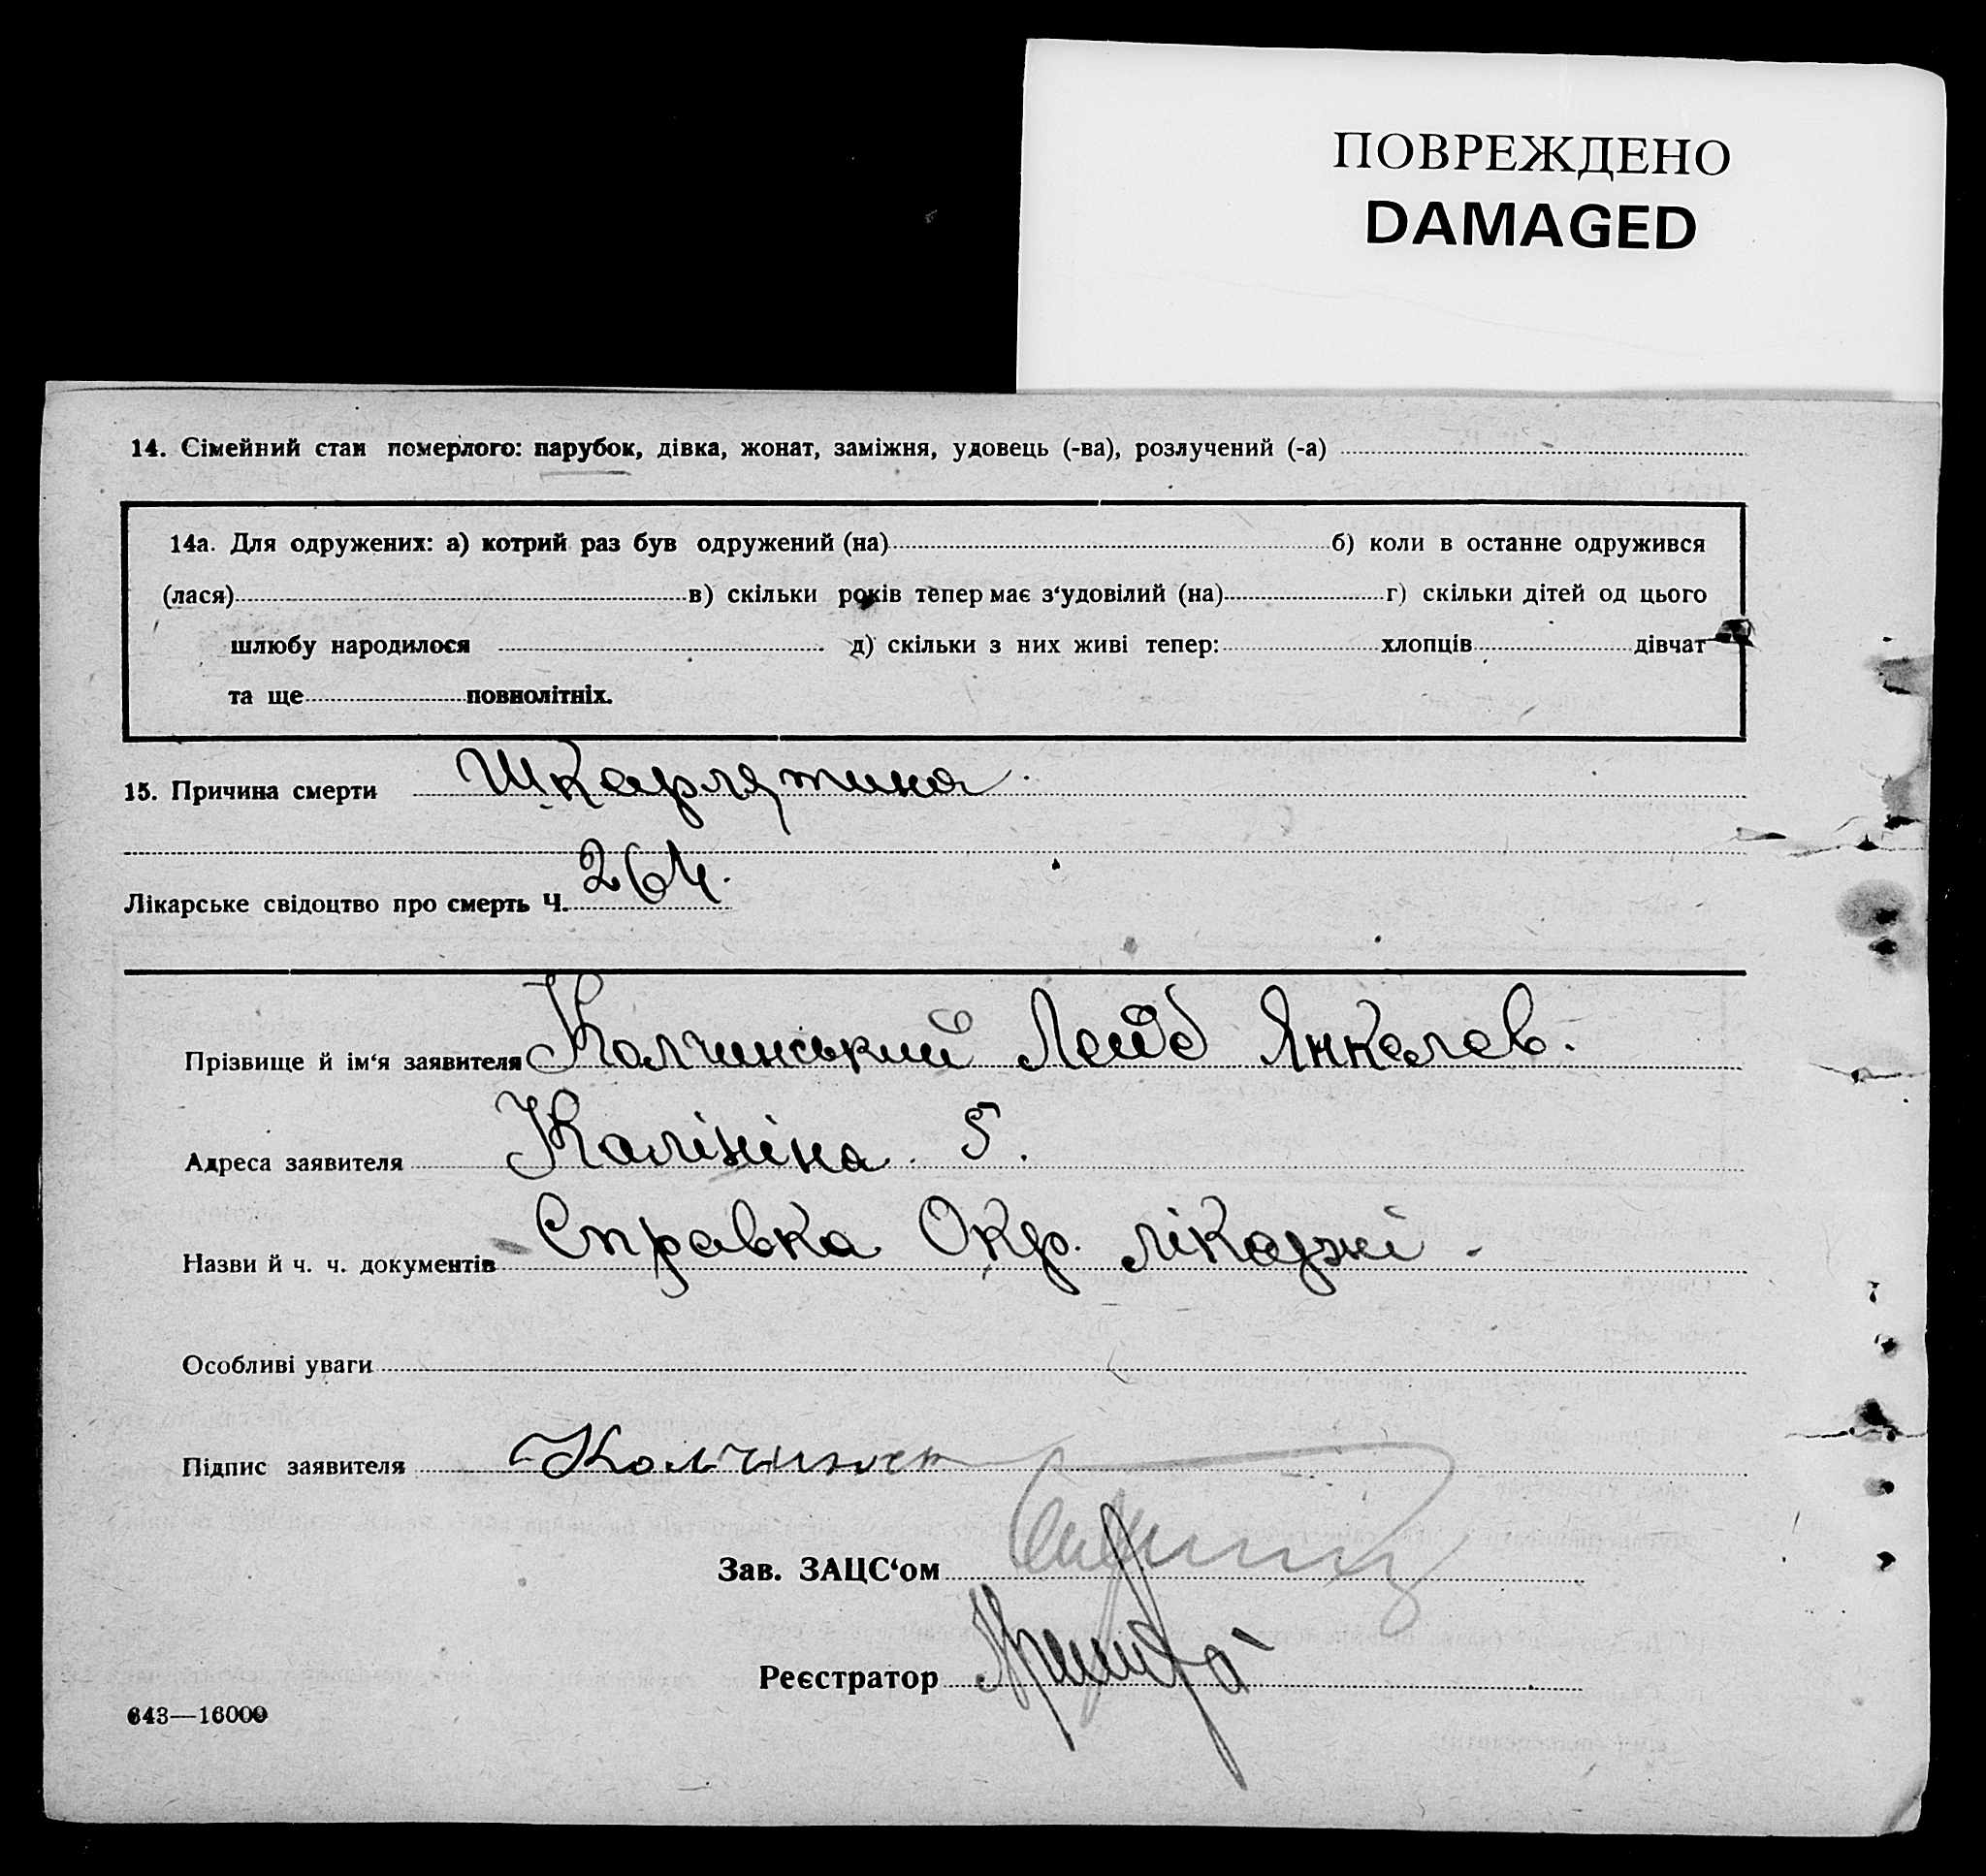 ПОВРЕЖДЕНО
DAMAGED
14. Сімейний стан померлого: парубок, дівка, жонат, заміжня, удовець (-ва), розлучений (-а)
14а. Для одружених: а) котрий раз був одружений (на) б) коли в останнє одружився
(лася) в) скільки років тепер має з'удовілий (на) г) скільки дітей од цього
шлюбу народилося д) скільки з них живі тепер: хлопців дівчат
та ще повнолітніх.
15. Причина смерти Шкарлятина
Лікарське свідоцтво про смерть Ч. 264.
Прізвище й ім'я заявителя Колчинський Лейб Янкелев.
Адреса заявителя Калініна 5.
Назви й ч. ч. документів Справка Окр. лікарні
Особливі уваги
Підпис заявителя Колчинск
Зав. ЗАЦС'ом
Реєстратор
643—16000